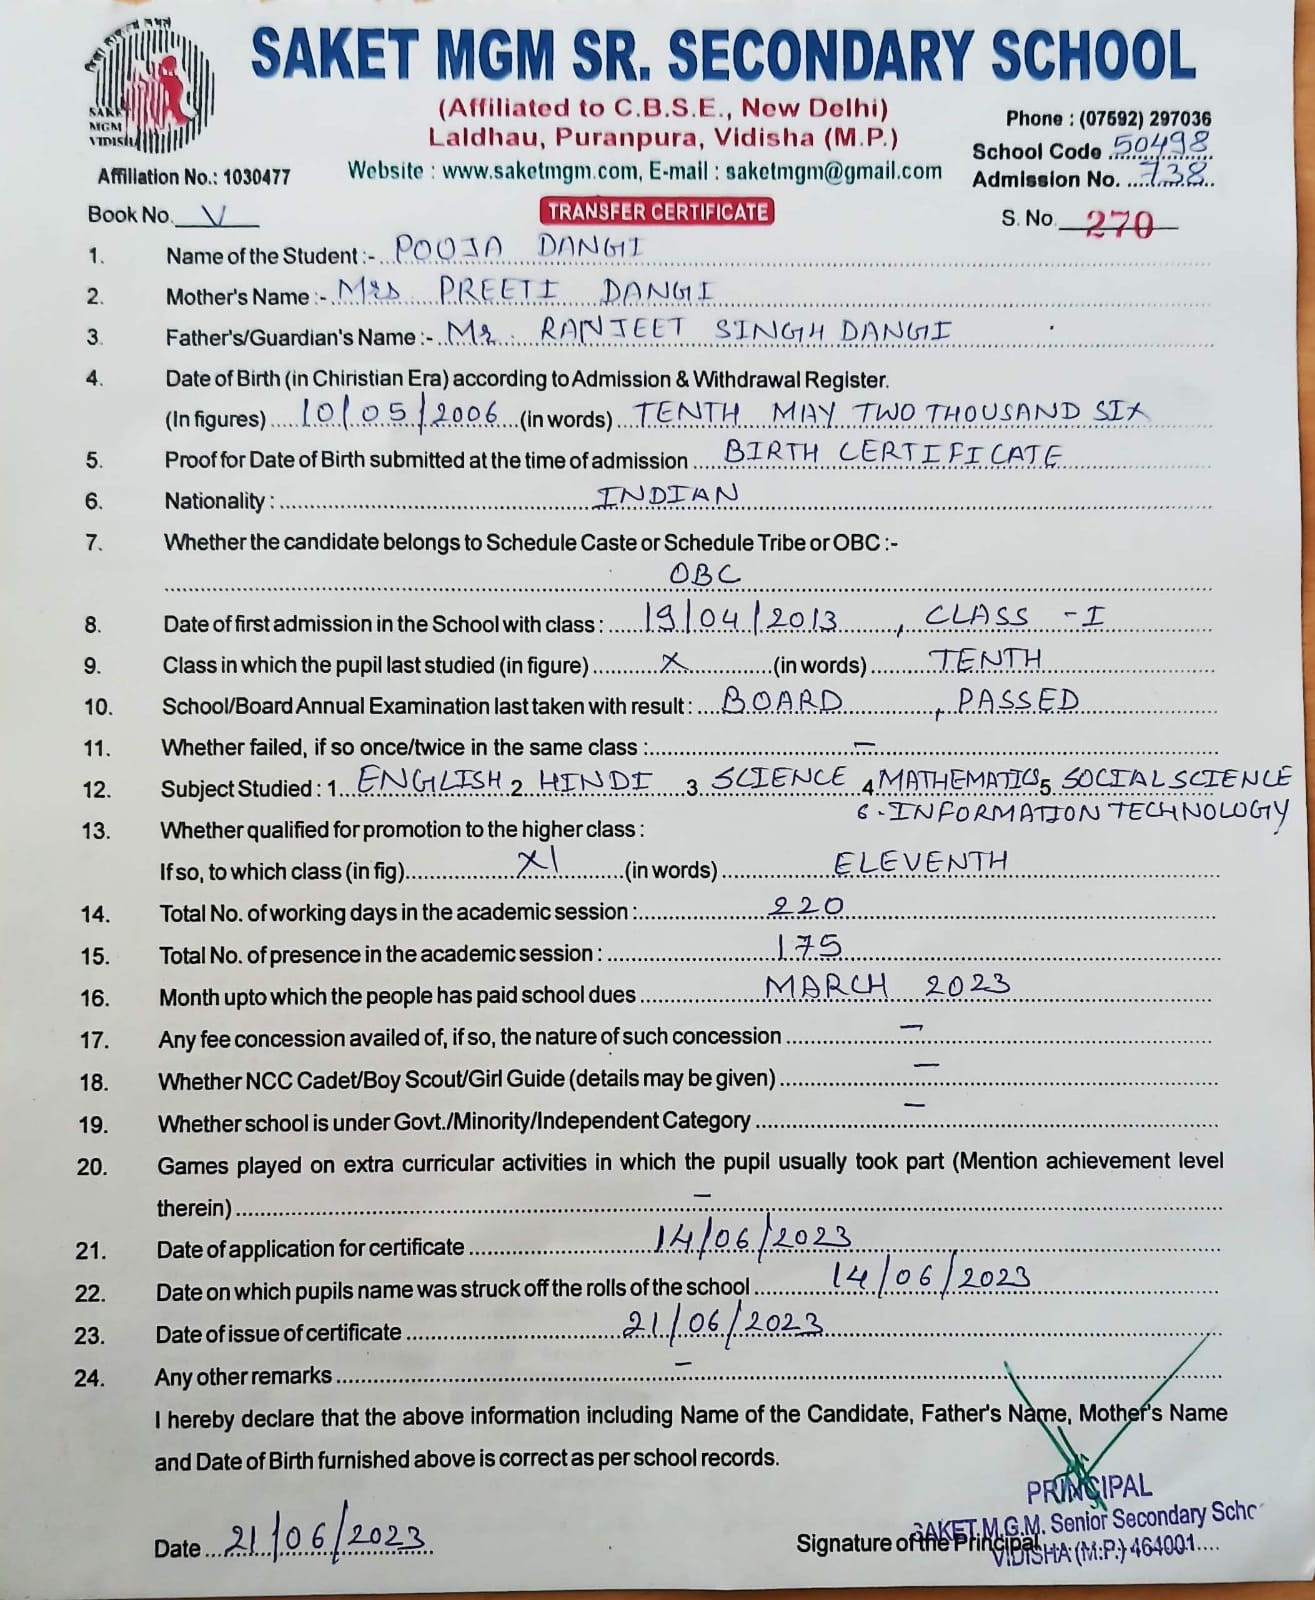 SAKET MGM SR. SECONDARY SCHOOL
(Affiliated to C.B.S.E., New Delhi)
Laldhau, Puranpura, Vidisha (M.P.)
Website : www.saketmgm.com, E-mail : saketmgm@gmail.com
SAKET
MGM
VIDISHA
Affiliation No.: 1030477
Phone : (07592) 297036
School Code 50498
Admission No. 738
Book No. V
TRANSFER CERTIFICATE
S. No. 270
1. Name of the Student :- POOJA DANGI
2. Mother's Name :- Mrs PREETI DANGI
3. Father's/Guardian's Name :- Mr. RANJEET SINGH DANGI
4. Date of Birth (in Chiristian Era) according to Admission & Withdrawal Register.
(In figures) 10/05/2006 (in words) TENTH MAY TWO THOUSAND SIX
5. Proof for Date of Birth submitted at the time of admission BIRTH CERTIFICATE
6. Nationality : INDIAN
7. Whether the candidate belongs to Schedule Caste or Schedule Tribe or OBC :-
OBC
8. Date of first admission in the School with class : 19/04/2013, CLASS - I
9. Class in which the pupil last studied (in figure) X (in words) TENTH
10. School/Board Annual Examination last taken with result : BOARD, PASSED
11. Whether failed, if so once/twice in the same class : -
12. Subject Studied : 1. ENGLISH 2. HINDI 3. SCIENCE 4 MATHEMATICS 5. SOCIAL SCIENCE
6. INFORMATION TECHNOLOGY
13. Whether qualified for promotion to the higher class :
If so, to which class (in fig) XI (in words) ELEVENTH
14. Total No. of working days in the academic session : 220
15. Total No. of presence in the academic session : 175
16. Month upto which the people has paid school dues MARCH 2023
17. Any fee concession availed of, if so, the nature of such concession -
18. Whether NCC Cadet/Boy Scout/Girl Guide (details may be given) -
19. Whether school is under Govt./Minority/Independent Category -
20. Games played on extra curricular activities in which the pupil usually took part (Mention achievement level
therein) -
21. Date of application for certificate 14/06/2023
22. Date on which pupils name was struck off the rolls of the school 14/06/2023
23. Date of issue of certificate 21/06/2023
24. Any other remarks -
I hereby declare that the above information including Name of the Candidate, Father's Name, Mother's Name
and Date of Birth furnished above is correct as per school records.
PRINCIPAL
SAKET M.G.M. Senior Secondary Scho
VIDISHA (M.P.) 464001
Date 21/06/2023
Signature of the Principal